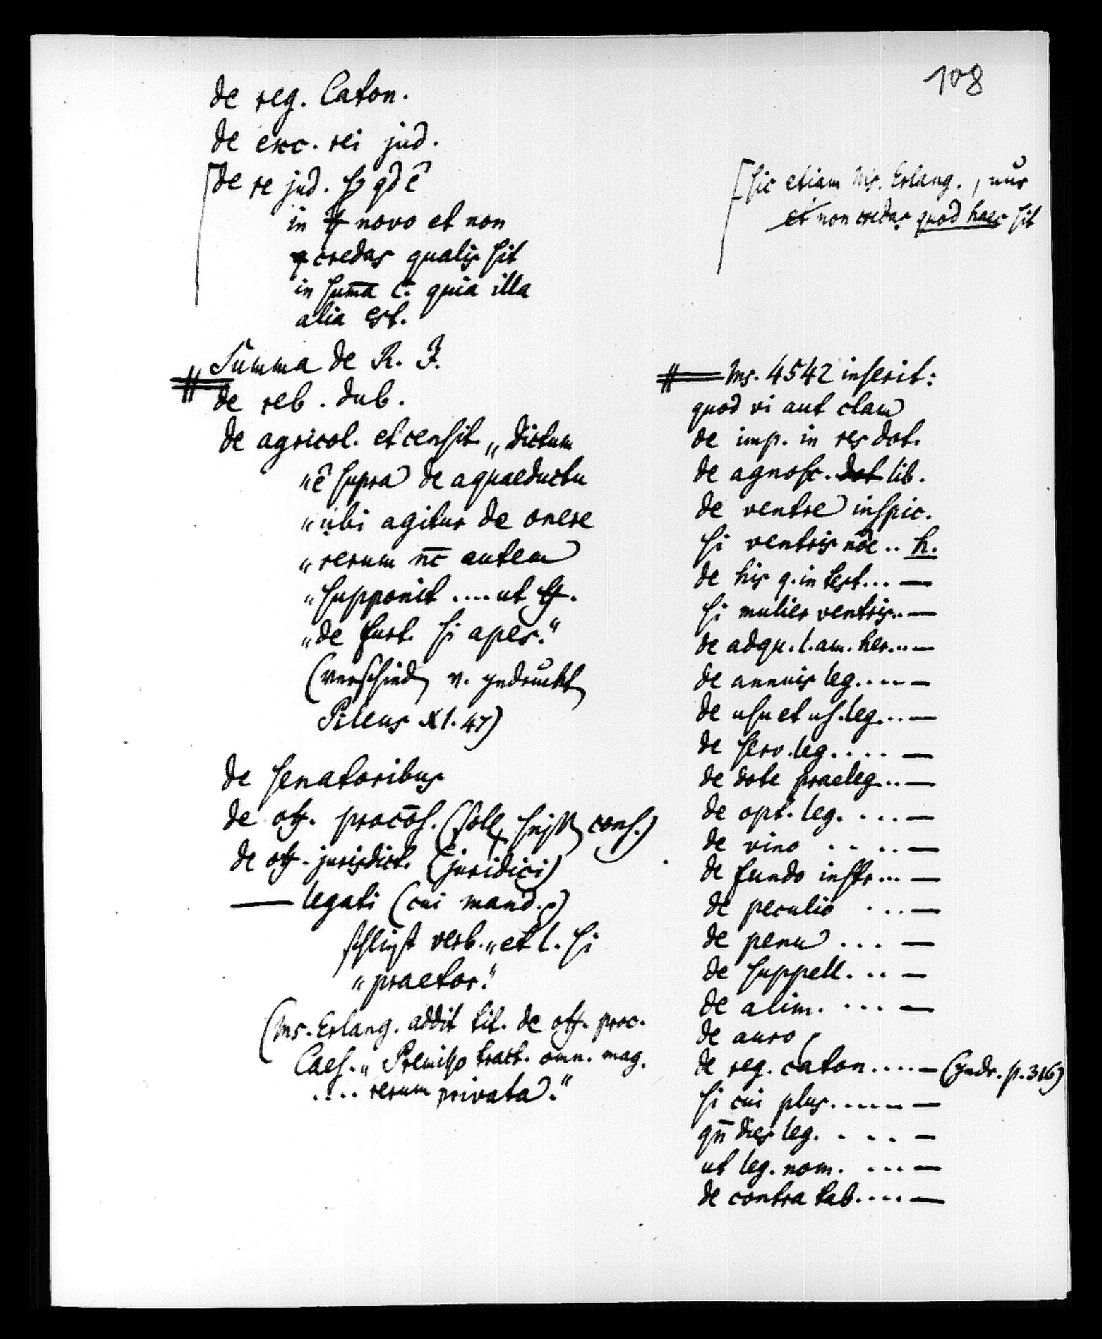 108
de reg. Caton.
de exc. rei jud.
de re jud. qd ē
in ff novo et non
credas qualis sit
in suma c. quia illa
alia est.
Summa de R. J.
de reb. dub.
de agricol. et censit „dictum
„ē supra de aquaeductu
„ubi agitur de onere
„rerum nc autem
„supponit .... ut ff.
„de furt. si apes."
(verschieden v. gedruckten
Pileus XI. 47)
de senatoribus
de off. procōs. (soll heißen cons.)
de off. jurisdict. (juridici)
— legati (cui mand. )
schließt verb. „et l. si
„praetor."
(Ms. Erlang. addit tit. de off. proc.
Caes. „Premisso tract. omn. mag.
.... rerum privata."
sic etiam Ms. Erlang., nur
et non credas quod haec sit
Ms. 4542 inserit:
quod vi aut clam
de imp. in res dot.
de agnosc. dot lib.
de ventre inspic.
si ventris nōe .. h.
de his q. in test... —
si mulier ventris.. —
de adqu. l. am. her... —
de annuis leg.... —
de usu et us. leg... —
de serv. leg.... —
de dote praeleg... —
de opt. leg.... —
de vino .... —
de fundo instr... —
de peculio ... —
de penu ... —
de suppell... —
de alim. ... —
de auro
de reg. caton.... — (gedr. p. 316)
si cui plus..... —
qn dies leg. ... —
ut leg. nom. ... —
de contra tab.... —